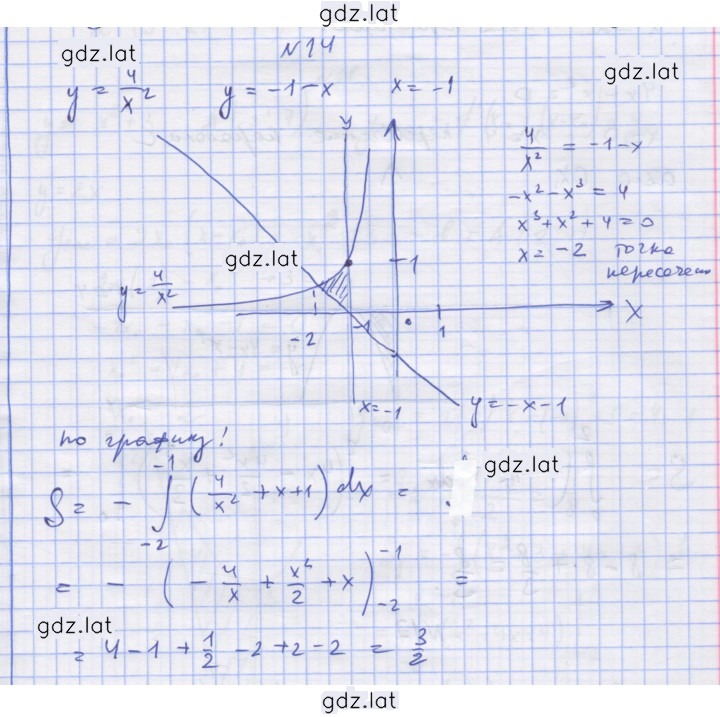 gdz.lat
№14
gdz.lat
gdz.lat
y = 4/x² y = -1-x x = -1
y
4/x² = -1-x
-x²-x³ = 4
x³+x²+4=0
x = -2 точка
пересечен
gdz.lat
1
y = 4/x²
-2 -1 1 X
x=-1
y=-x-1
по графику!
gdz.lat
S = - ∫_{-2}^{-1} (4/x² + x+1) dx =
= - (-4/x + x²/2 + x)|_{-2}^{-1} =
gdz.lat
= 4-1+1/2-2+2-2 = 3/2
gdz.lat